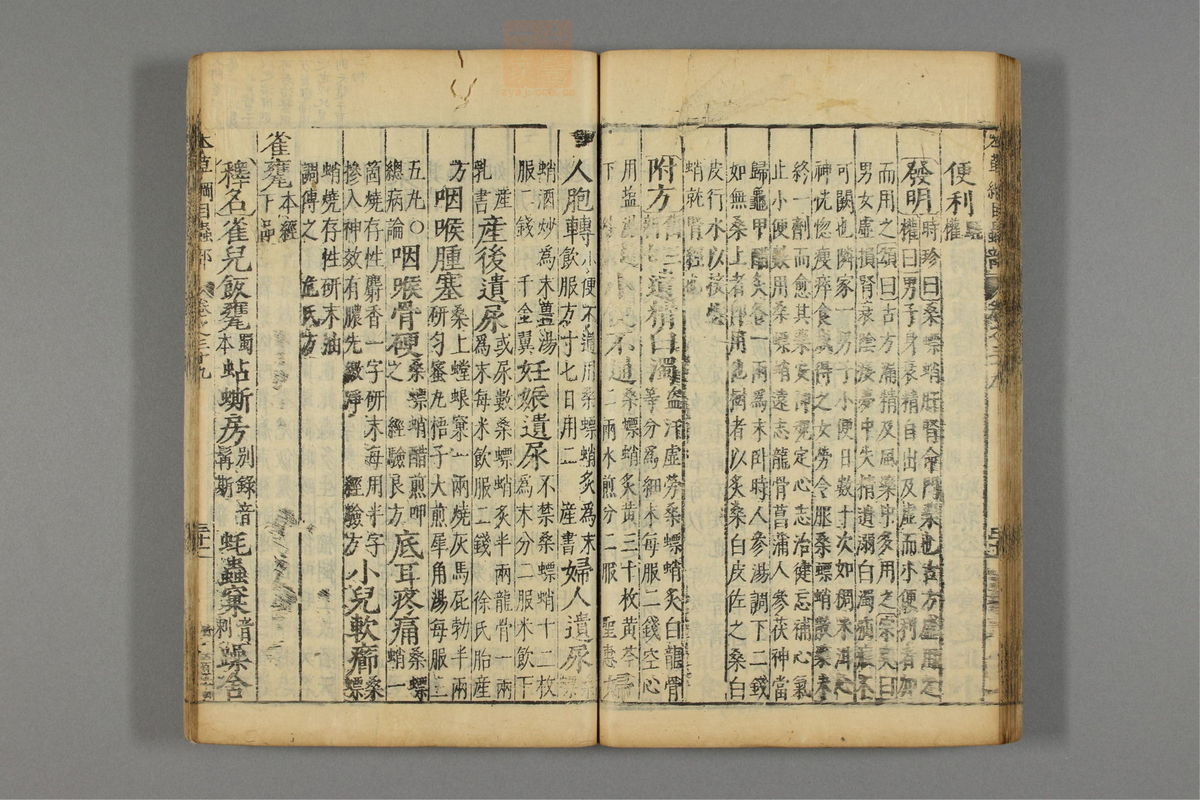 便利 甄權
發明 時珍曰桑螵蛸肝腎命門藥也古方盛用之
權曰男子身衰精自出及虛而小便利者加
而用之頌曰古方漏精及風藥中多用之宗奭曰
男女虛損腎衰陰痿夢中失精遺溺白濁疝瘕不
可闕也隣家一男子小便日數十次如稠米泔心
神恍惚瘦瘁食減得之女勞令服桑螵蛸散藥未
終一劑而愈其藥安神魂定心志治健忘補心氣
止小便數用桑螵蛸遠志龍骨菖蒲人參茯神當
歸龜甲醋炙各一兩為末卧時人參湯調下二錢
如無桑上者即用他樹者以炙桑白皮佐之桑白
皮行水以接螵
蛸就腎經也
附方 遺精白濁盜汗虛勞桑螵蛸炙白龍骨
等分為細末每服二錢空心
用鹽 不通桑螵蛸炙黃三十枚黃芩
二兩水煎分二服 聖惠 婦
人胞轉小便不通用桑螵蛸炙為末
飲服方寸匕日用二 產書 婦人遺尿桑螵
蛸酒炒為末薑湯
服二錢 千金翼 妊娠遺尿不禁桑螵蛸十二枚
為末分二服米飲下
產 產後遺尿或尿數桑螵蛸炙半兩龍骨一兩
乳書 為末每米飲服二錢 徐氏胎產
方 咽喉腫塞桑上螳蜋窠一兩燒灰馬屁勃半兩
研勻蜜丸梧子大煎犀角湯每服三
五丸〇 咽喉骨硬桑螵蛸醋煎呷
總病論 之 經驗良方 底耳疼痛桑螵
蛸一
箇燒存性麝香一字研末每用半字
摻入神效有膿先繳淨 經驗方 小兒軟癤桑
螵
蛸燒存性研末油
調傅之 危氏方
雀甕 本經
下品
釋名 雀兒飯甕蜀
本 蛅蟖房別錄音
髯斯 蚝蟲窠音
刺 躁舍